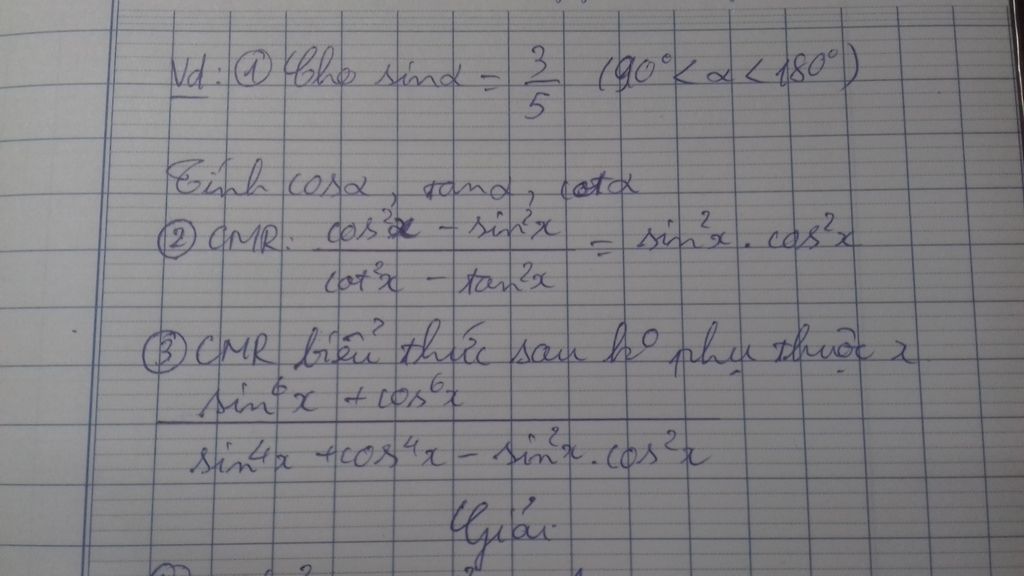 Vd: ① Cho sinα = 3/5 (90° < α < 180°)
Tính cosα, tanα, cotα
② CMR: (cos²x - sin²x)/(cot²x - tan²x) = sin²x . cos²x
③ CMR biểu thức sau ko phụ thuộc x
sin⁶x + cos⁶x
sin⁴x + cos⁴x - sin²x . cos²x
Giải